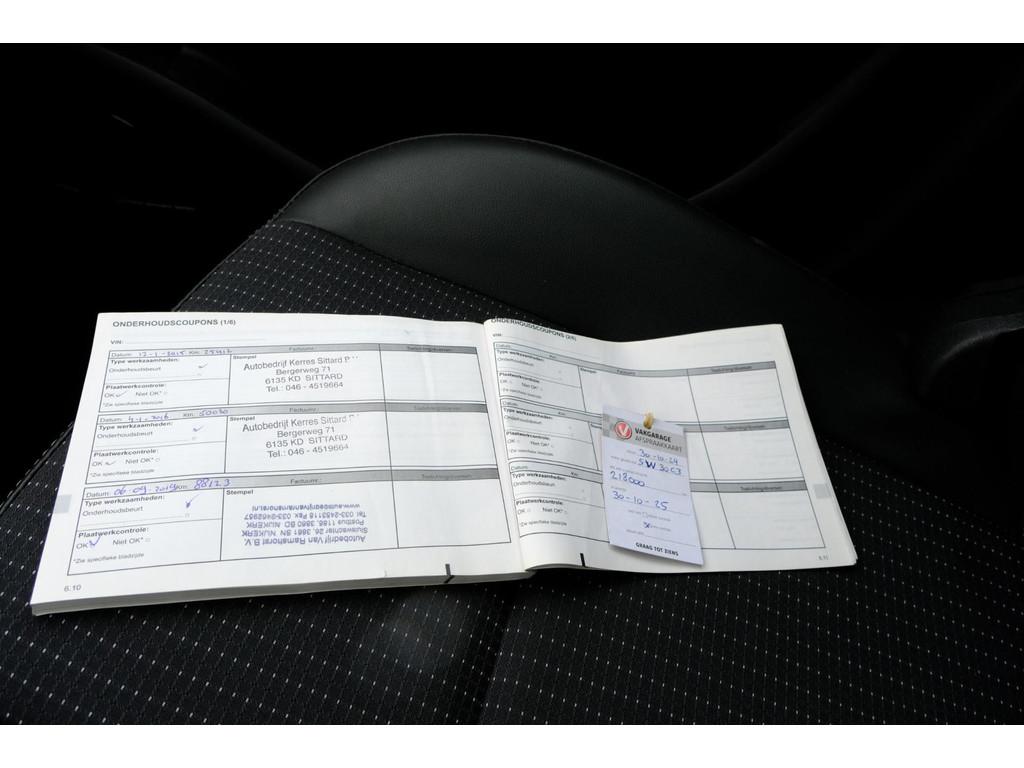 ONDERHOUDSCOUPONS (1/6)
VIN:
Datum: 12-1-2015 Km: Factuurnr.: Toelichting/diversen:
Type werkzaamheden:
Onderhoudsbeurt
Stempel
Autobedrijf Kerres Sittard
Bergerweg 71
6135 KD SITTARD
Tel.: 046 - 4519664
Plaatwerkcontrole:
OK Niet OK*
*Zie specifieke bladzijde
Datum: 4-1-2016 Km: 50030 Factuurnr.: Toelichting/diversen:
Type werkzaamheden:
Onderhoudsbeurt
Stempel
Autobedrijf Kerres Sittard
Bergerweg 71
6135 KD SITTARD
Tel.: 046 - 4519664
Plaatwerkcontrole:
OK Niet OK*
*Zie specifieke bladzijde
Datum: 06-09-2019 Km: 88123 Factuurnr.: Toelichting/diversen:
Type werkzaamheden:
Onderhoudsbeurt
Stempel
Autobedrijf Van Ramshorst B.V.
Sluiswachter 26, 3861 SN NIJKERK
Postbus 1186, 3860 BD NIJKERK
Tel 033-2453118 Fax 033-2462957
www.autobedrijfvanramshorst.nl
Plaatwerkcontrole:
OK Niet OK*
*Zie specifieke bladzijde
6.10
ONDERHOUDSCOUPONS (2/6)
VIN:
Datum: Km: Factuurnr.: Toelichting/diversen:
Type werkzaamheden:
Onderhoudsbeurt
Stempel
Plaatwerkcontrole:
OK Niet OK*
*Zie specifieke bladzijde
Datum:
Type werkzaamheden:
Onderhoudsbeurt
Plaatwerkcontrole:
OK Niet OK*
*Zie specifieke bladzijde
Datum: Km:
Type werkzaamheden:
Onderhoudsbeurt
Plaatwerkcontrole:
OK Niet OK*
*Zie specifieke bladzijde
6.11
VAKGARAGE
AFSPRAAKKAART
30-10-24
5W30 C3
218000
30-10-25
GRAAG TOT ZIENS